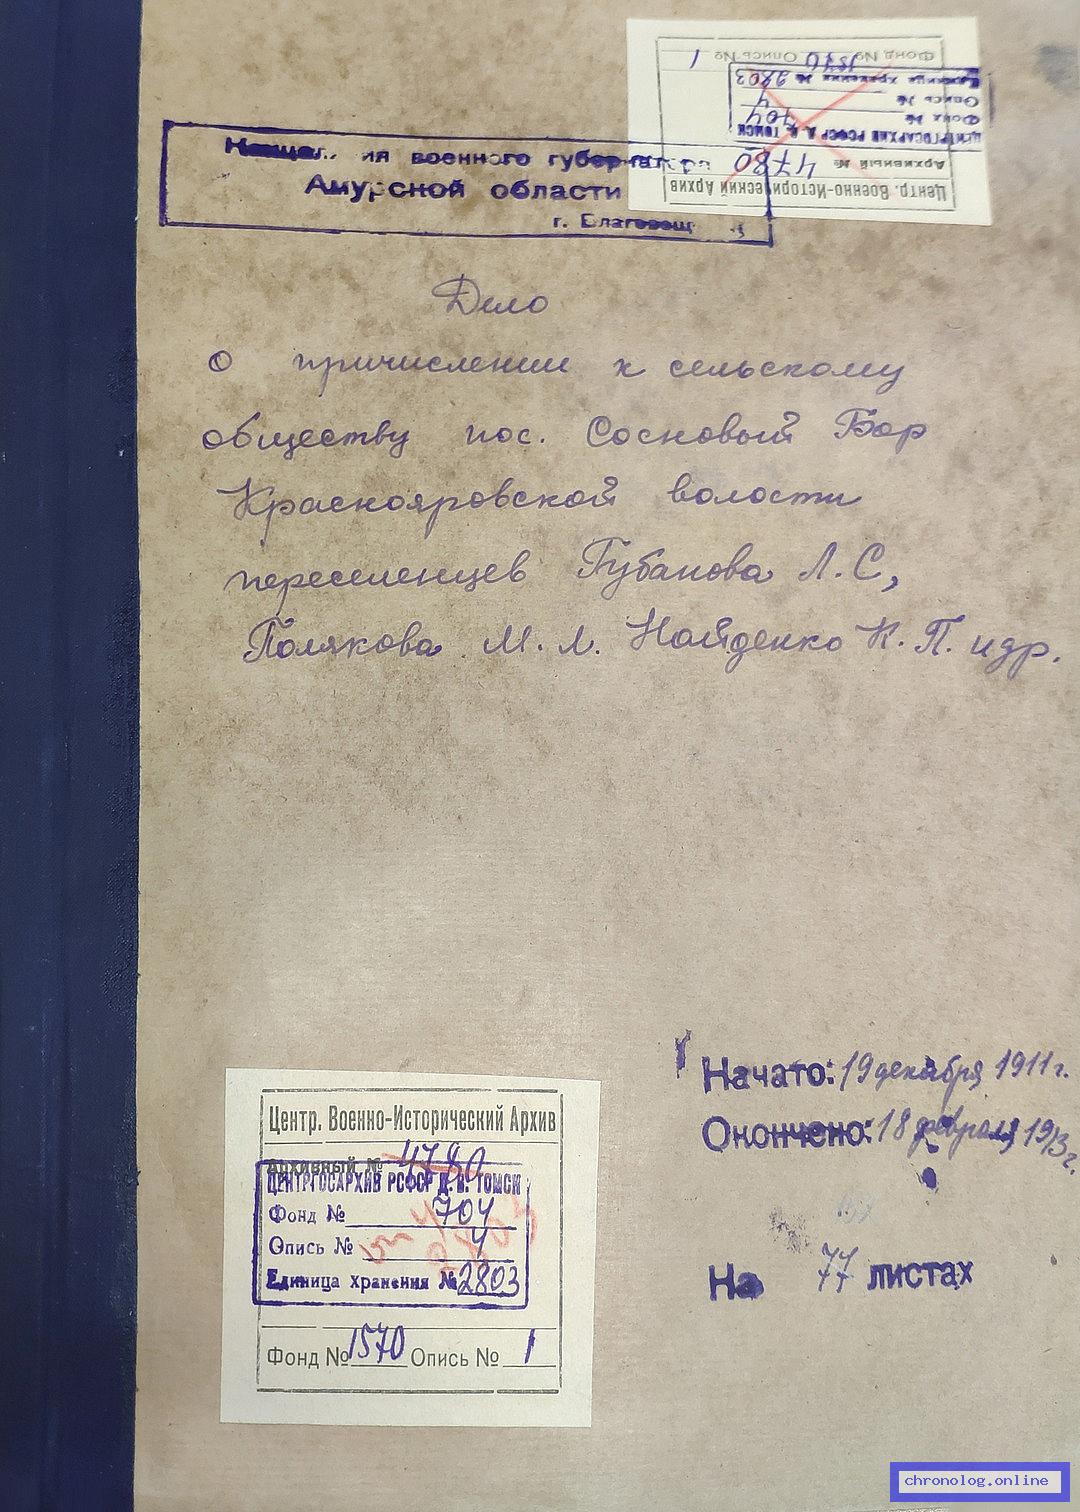 Фонд № 1570 Опись № 1
Единица хранения № 2803
Опись № 4
Фонд № 704
ЦЕНТРГОСАРХИВ РСФСР Д. В. ТОМСК
Архивный № 4780
Центр. Военно-Исторический Архив
военного
Амурской области
г. Благовещ
Дело
о причислении к сельскому
обществу пос. Сосновый Бор
Краснояровской волости
переселенцев Губанова Л. С,
Полякова М. Л. Найденко К. П. и др.
Начато: 19 декабря 1911 г.
Окончено: 18 февраля 1913 г.
На 77 листах
Центр. Военно-Исторический Архив
Архивный № 4780
ЦЕНТРГОСАРХИВ РСФСР Д. В. ТОМСК
Фонд № 704
Опись № 4
Единица хранения № 2803
Фонд № 1570 Опись № 1
chronolog.online